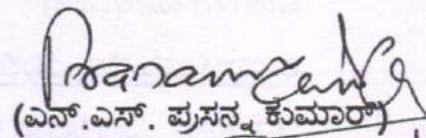 (ಎನ್.ಎಸ್. ಪ್ರಸನ್ನ ಕುಮಾರ್)